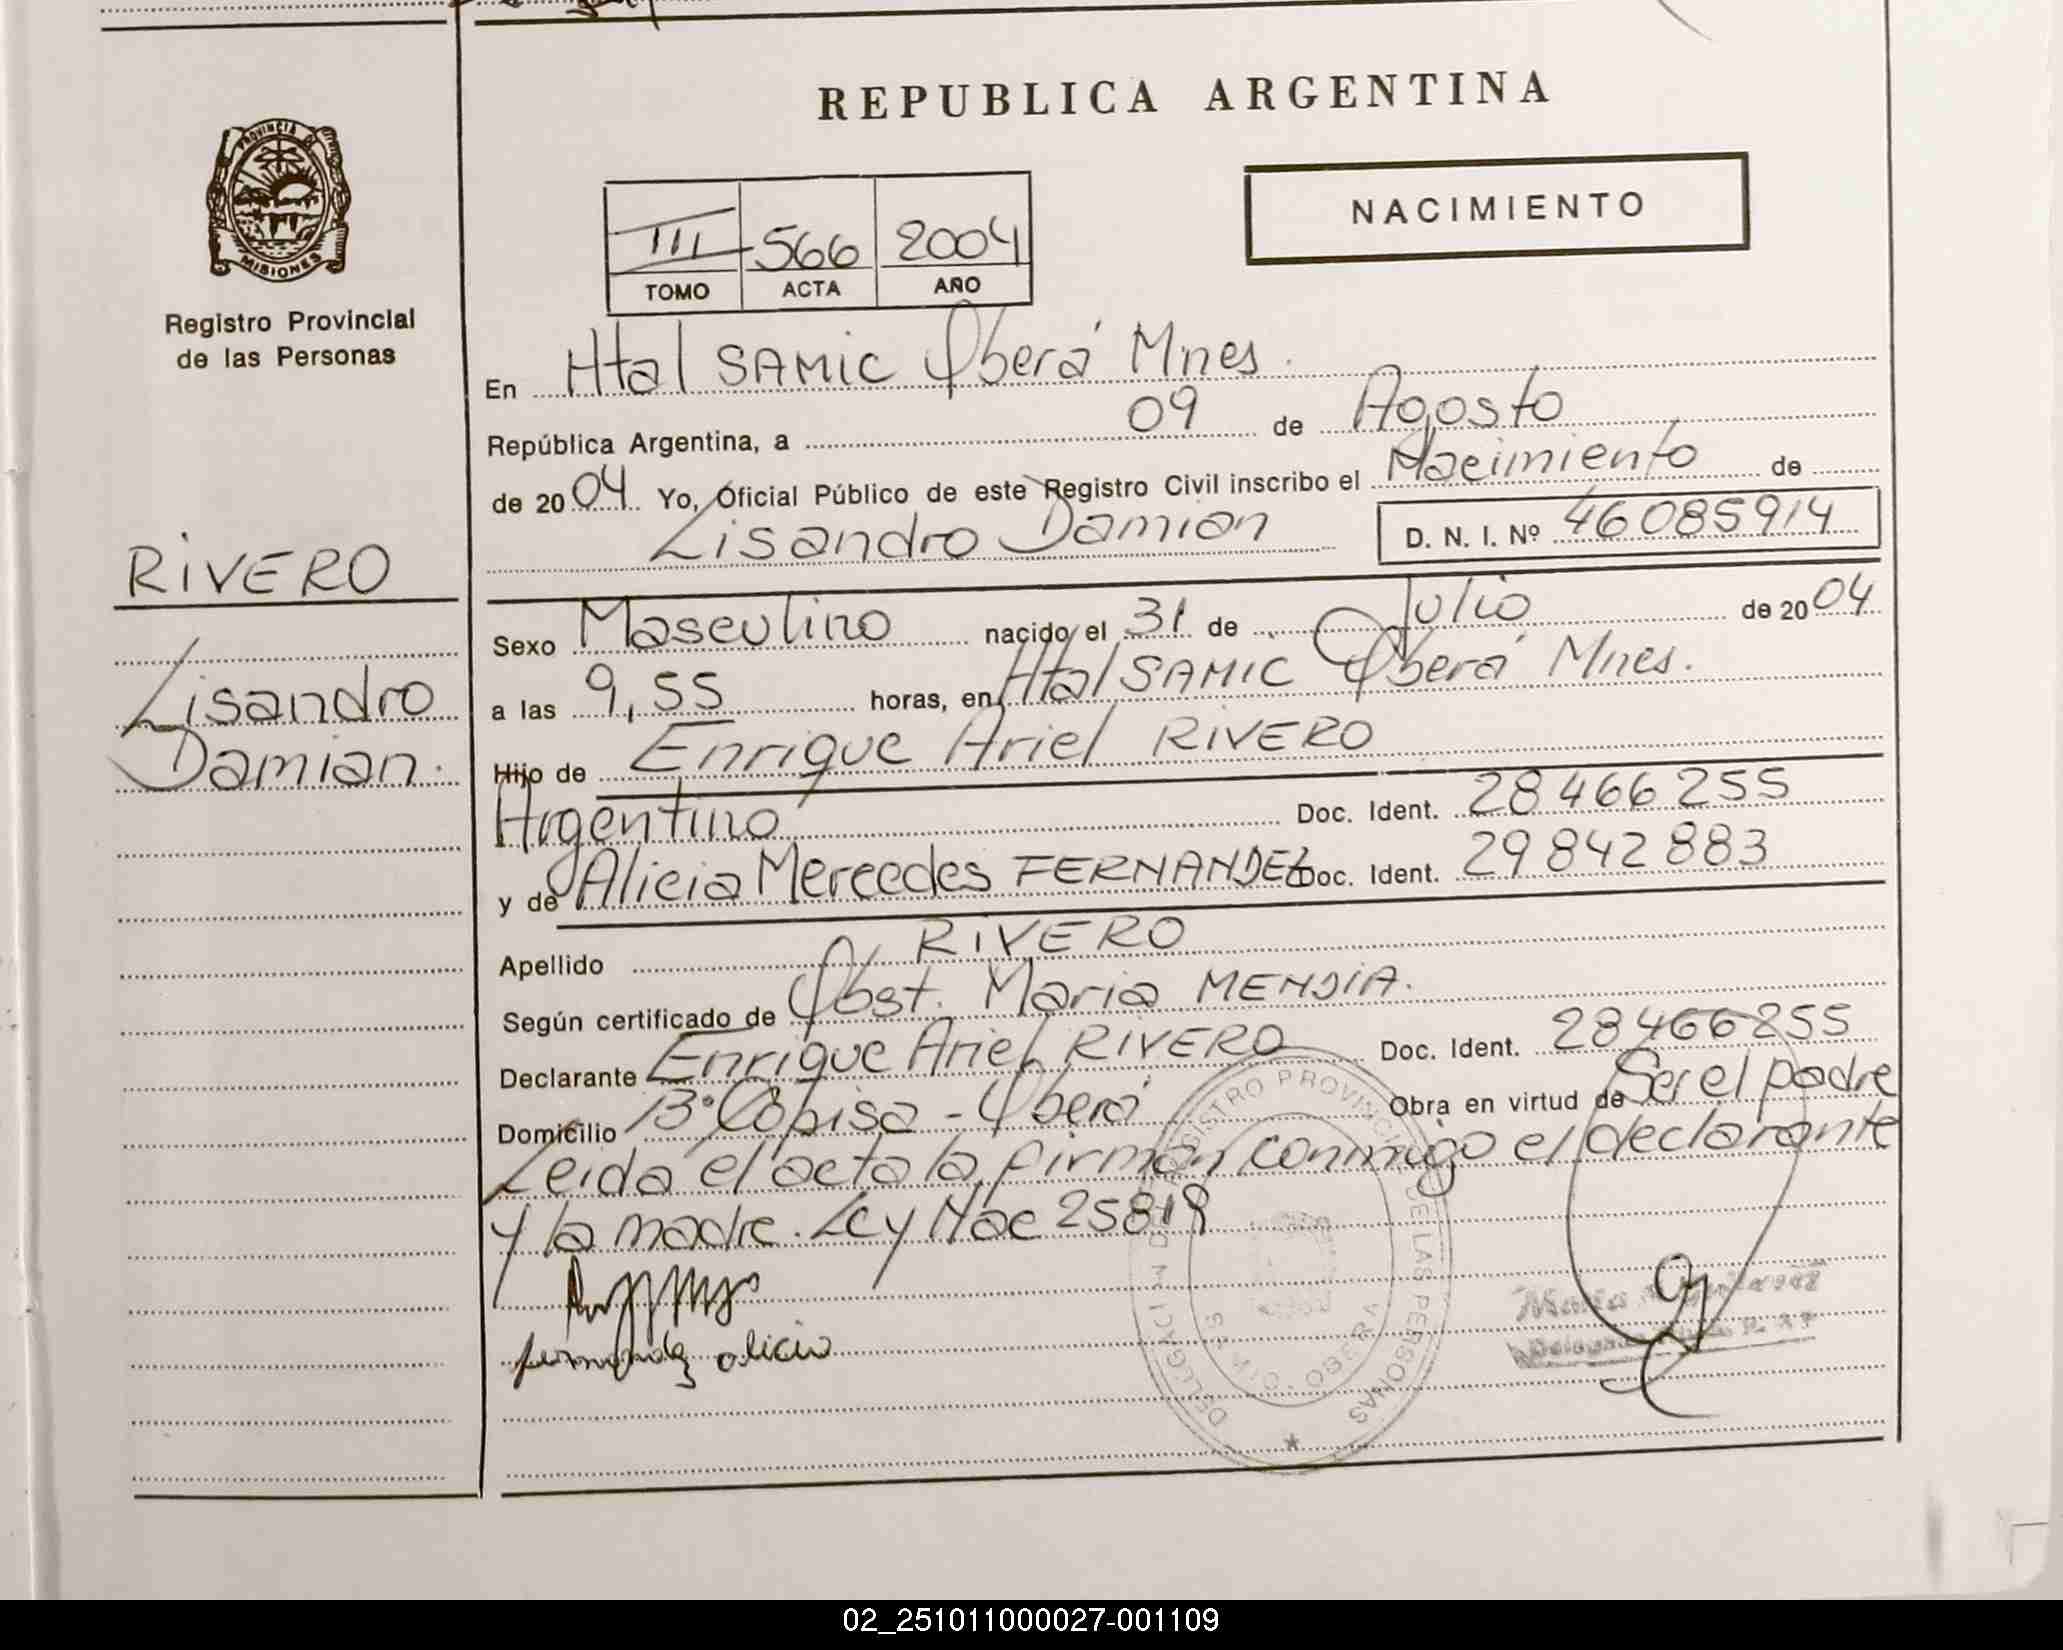 REPUBLICA ARGENTINA
PROVINCIA DE
MISIONES
Registro Provincial
de las Personas
NACIMIENTO
III 566 2004
TOMO ACTA AÑO
En Htal SAMIC Oberá Mnes.
República Argentina, a 09 de Agosto
de 2004 Yo, Oficial Público de este Registro Civil inscribo el Nacimiento de
Lisandro Damian D. N. I. Nº 46085914
RIVERO
Lisandro
Damian.
Sexo Masculino nacido el 31 de Julio de 2004
a las 9,55 horas, en Htal SAMIC Oberá Mnes.
Hijo de Enrique Ariel RIVERO
Argentino Doc. Ident. 28466255
y de Alicia Mercedes FERNANDEZ Doc. Ident. 29842883
Apellido RIVERO
Según certificado de Obst. Maria MENDIA.
Declarante Enrique Ariel RIVERO Doc. Ident. 28466255
Domicilio Bº Copisa - Oberá Obra en virtud de Ser el padre
Leida el acta la firman conmigo el declarante
y la madre. Ley Nac 25819
fernandez alicia
REGISTRO PROVINCIAL DE LAS PERSONAS
OBERA
02_251011000027-001109